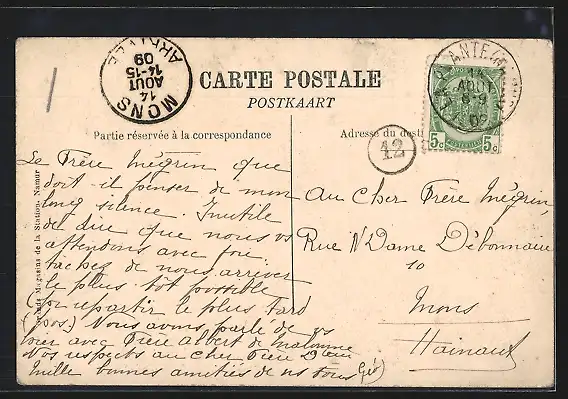 MONS
14
AOUT
14-15
09
ARRIVEE
14
AOUT
8-9
09
5c 5c
CARTE POSTALE
POSTKAART
Partie réservée à la correspondance
Adresse du dest
12
Grands Magasins de la Station, Namur
Le Frère Mégrin que
doit il penser de mon
long silence. Inutile
de dire que nous vs
attendons avec joie,
tachez de nous arriver
le plus tôt possible
(for repartir le plus tard
(pos.) Nous avons parlé de vs
hier avec Frère Albert de Malonne
Vos respects au Cher Frère
Mille bonnes amitiés de ns tous
Au Cher Frère Mégrin,
Rue N Dame Débonnaire
10
Mons
Hainaut